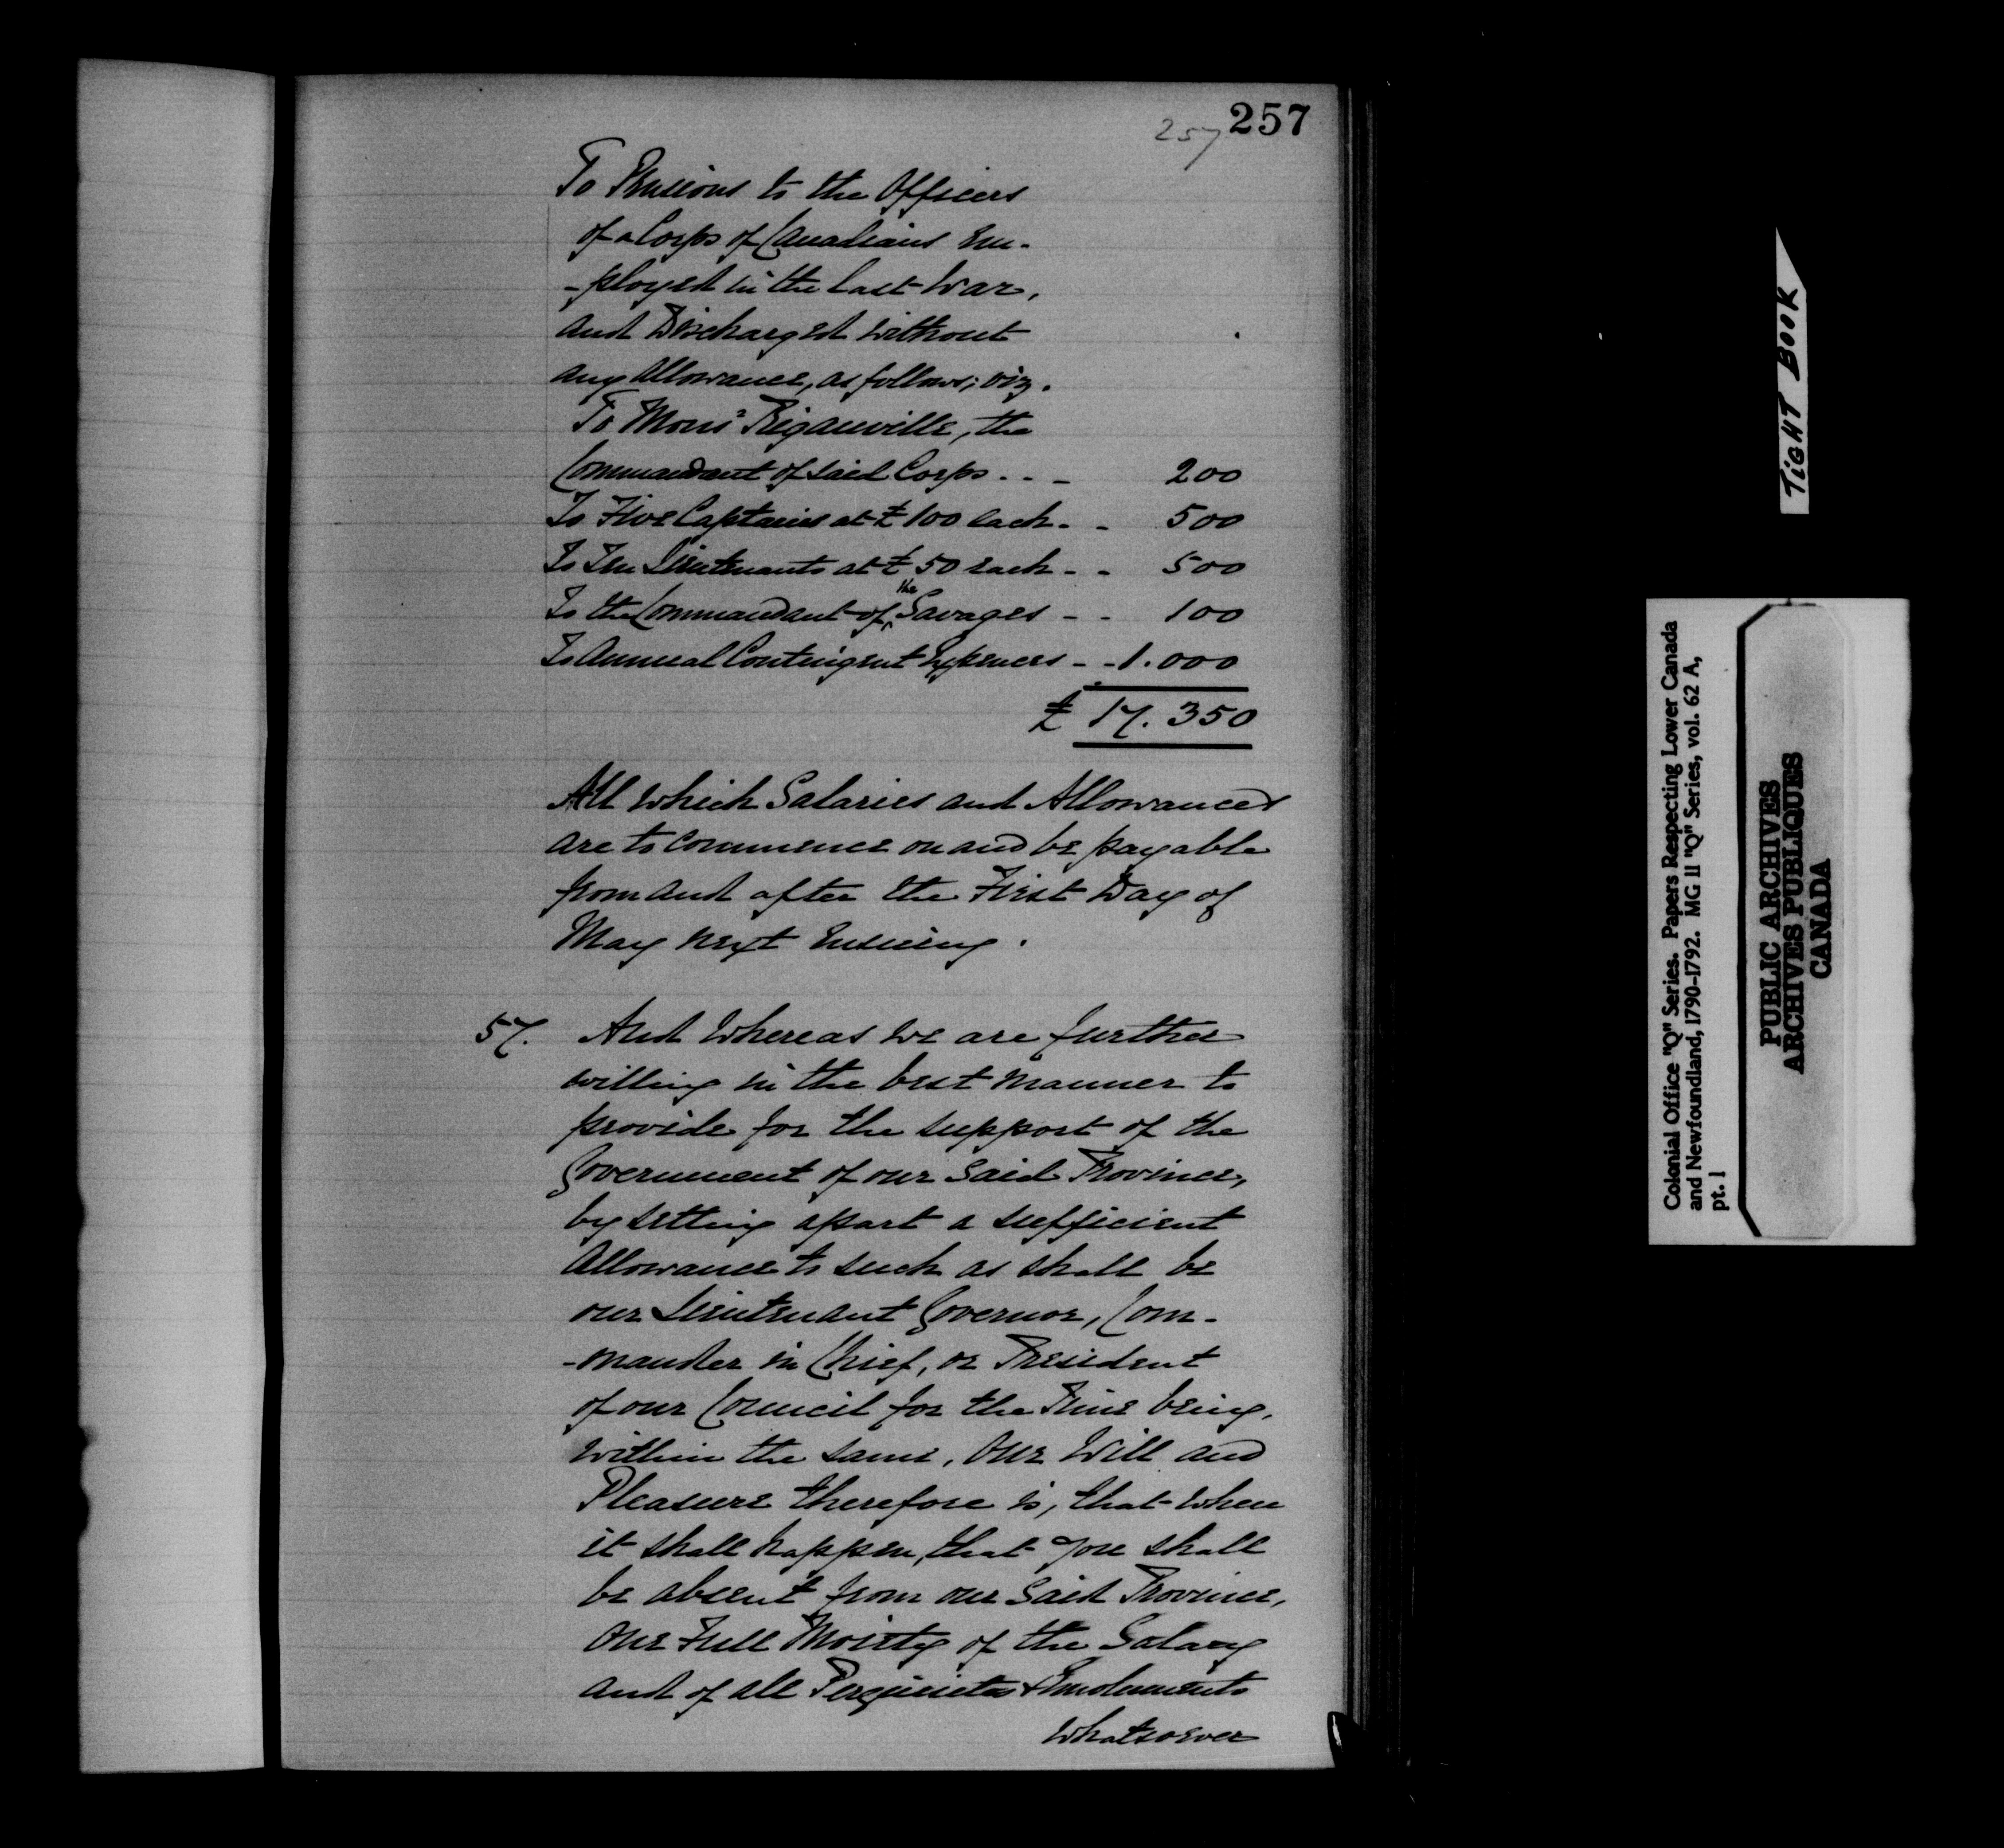 257 257
To Pensions to the Officers
of a Corps of Canadians Em-
-ployed in the last War,
and Discharged without
any Allowance, as follows; viz.
To Monsr Riganville, the
Commandant of said Corps . . - 200
To Five Captains at £100 each - - 500
To Ten Lieutenants at £50 each - - 500
To the Commandant of the Savages - - 100
To Annual Contingent Expences - - 1.000
£ 17.350
All which Salaries and Allowances
are to commence on and be payable
from and after the First Day of
May next Ensuing.
57. And Whereas we are further
willing in the best manner to
provide for the support of the
Government of our said Province,
by setting apart a sufficient
Allowance to such as shall be
our Lieutenant Governor, Com-
-mander in Chief, or President
of our Council for the Time being,
within the same, Our Will and
Pleasure therefore is, that when
it shall happen, that you shall
be absent from our said Province,
One Full Moiety of the Salary
and of all Perquisites & Emoluments
Whatsoever
TIGHT BOOK
Colonial Office "Q" Series. Papers Respecting Lower Canada
and Newfoundland, 1790-1792. MG 11 "Q" Series, vol. 62 A,
pt. 1
PUBLIC ARCHIVES
ARCHIVES PUBLIQUES
CANADA